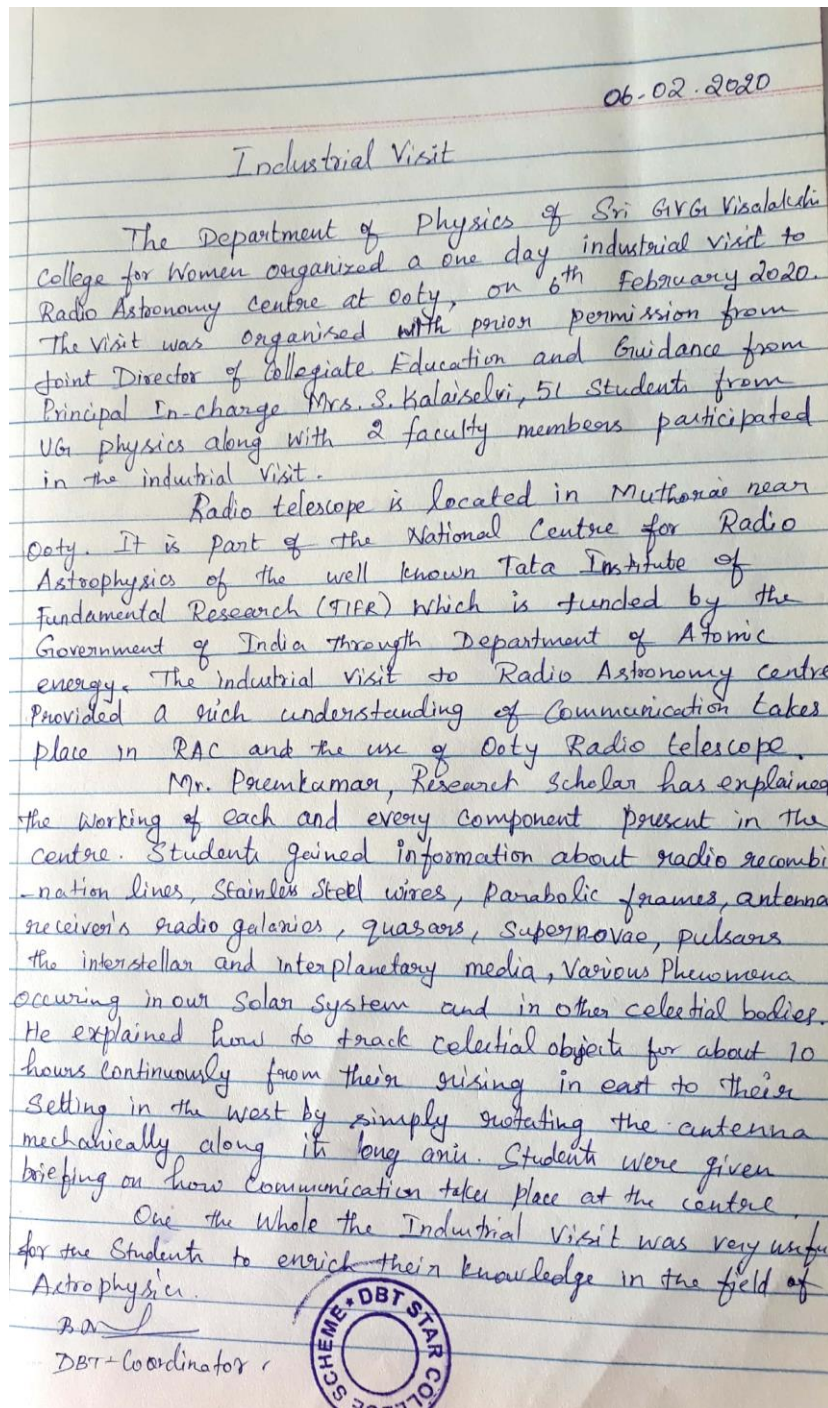 06-02-2020
Industrial Visit
The Department of Physics of Sri GVG Visalakshi
College for Women organized a one day industrial visit to
Radio Astronomy centre at Ooty, on 6th February 2020.
The visit was organised with prior permission from
Joint Director of Collegiate Education and Guidance from
Principal In-charge Mrs. S. Kalaiselvi, 51 Students from
UG physics along with 2 faculty members participated
in the industrial Visit.
Radio telescope is located in Muthorai near
Ooty. It is part of the National Centre for Radio
Astrophysics of the well known Tata Institute of
Fundamental Research (TIFR) which is funded by the
Government of India through Department of Atomic
energy. The industrial visit to Radio Astronomy centre
Provided a rich understanding of Communication takes
place in RAC and the use of Ooty Radio telescope.
Mr. Premkumar, Research Scholar has explained
the working of each and every component present in the
centre. Students gained information about radio recombi
-nation lines, Stainless Steel wires, parabolic frames, antenna
receiver's radio galaxies, quasars, Supernovae, pulsars
the interstellar and interplanetary media, Various Phenomena
occuring in our Solar System and in other celestial bodies.
He explained how to track celestial objects for about 10
hours continuously from their rising in east to their
Setting in the west by simply rotating the antenna
mechanically along its long axis. Students were given
briefing on how communication takes place at the centre.
One the whole the Industrial Visit was very usefu
for the Students to enrich their knowledge in the field of
Astrophysics.
DBT-Coordinator
DBT STAR COLLEGE SCHEME